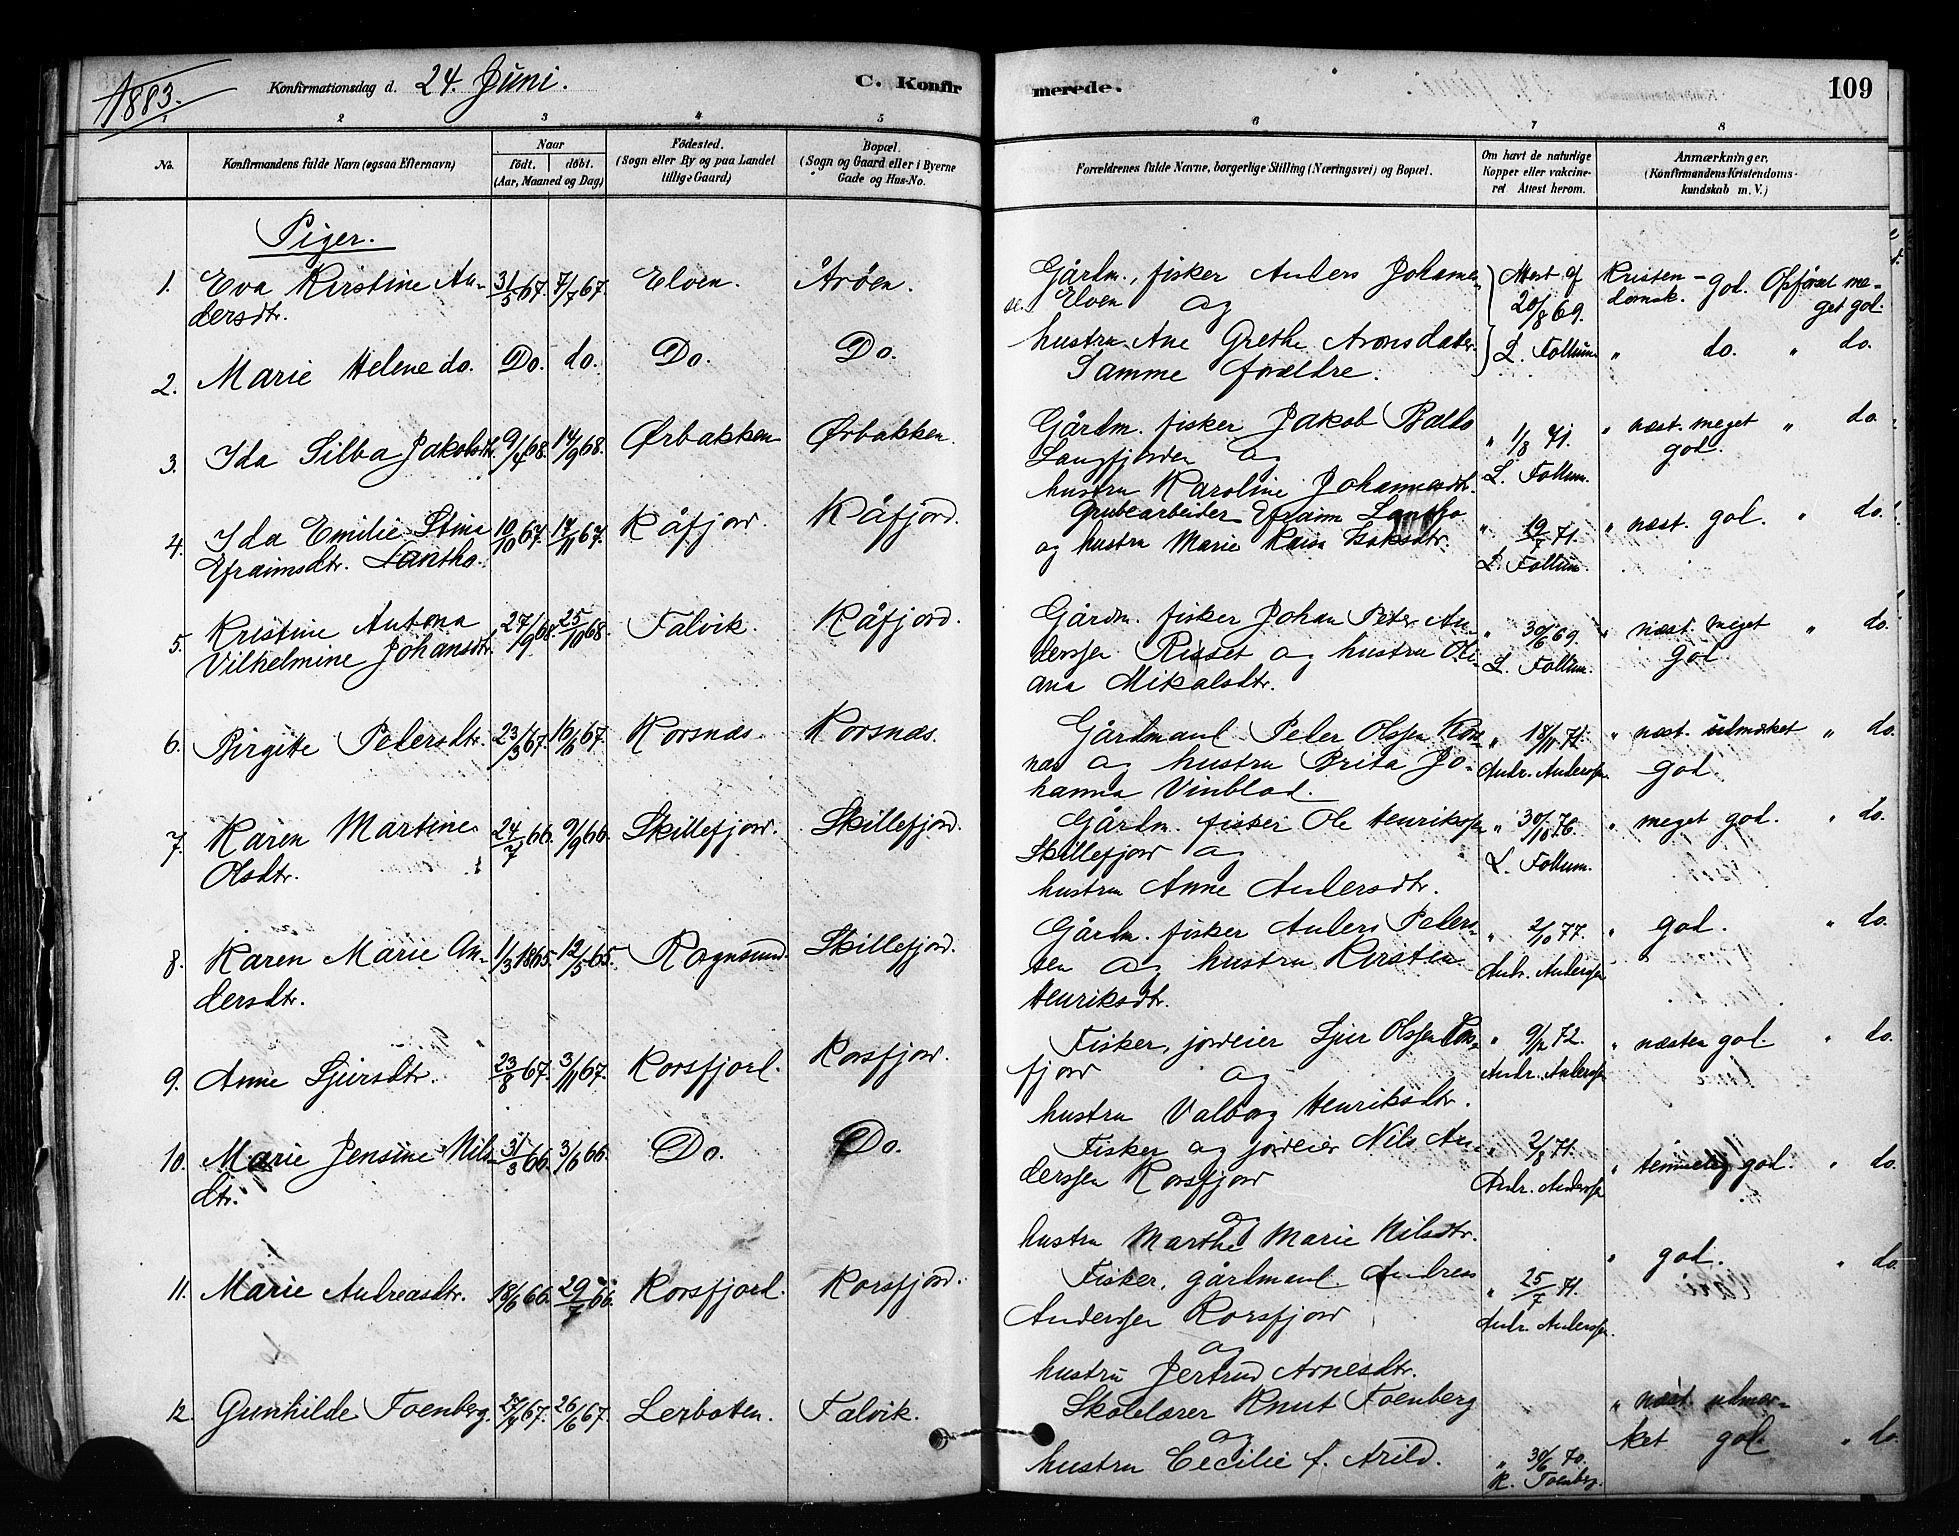 1883.
Konfirmationsdag d. 24. Juni.
C. Konfirmerede.
109
1 2 3 4 5 6 7 8
No.
Konfirmandens fulde Navn (ogsaa Efternavn)
Naar
født. døbt.
(Aar, Maaned og Dag)
Fødested.
(Sogn eller By og paa Landet
tillige Gaard)
Bopæl.
(Sogn og Gaard eller i Byerne
Gade og Hus-No.
Forældrenes fulde Navne, borgerlige Stilling (Næringsvei) og Bopæl.
Om havt de naturlige
Kopper eller vakcine-
ret Attest herom.
Anmærkninger.
(Konfirmandens Kristendoms-
kundskab m. V.)
Piger.
1. Eva Kirstine An- 31/5 67. 7/7 67. Elven. Årøen. Gårdm., fisker Anders Johannes- Attest af Kristen- god. Opførsel me-
dersdtr. sen Elven og 20/8 69. domsk. get god.
hustru Ane Grethe Aronsdater. L. Follum.
2. Marie Helene do. Do. do. Do. Do. Samme forældre. " do. " do.
3. Ida Silba Jakobsdtr. 9/4 68. 14/9 68. Ørbakken Ørbakken. Gårdm. fisker Jakob Balto " 1/8 71. " næst. meget " do.
Langfjorden og L. Follum. god.
hustru Karoline Johannesdtr.
4. Ida Emilie Stina 10/10 67. 17/11 67. Kåfjord. Kåfjord. Grubearbeider Efraim Lantho " 19/7 71. " næst. god. " do.
Efraimsdtr. Lantho. og hustru Marie Kaisa Isaksdtr. L. Follum.
5. Kristine Antona 27/9 68. 25/10 68. Talvik. Kåfjord. Gårdm. fisker Johan Peter An- " 30/6 69. " næst. meget " do.
Vilhelmine Johansdtr. derssen Risset og hustru Oli- L. Follum. god.
ana Mikalsdtr.
6. Birgitte Petersdtr. 23/3 67. 16/6 67. Korsnæs. Korsnæs. Gårdmand Peter Olssen Kors- " 18/11 71. " næst. udmærket " do.
næs og hustru Brita Jo- Andr. Anderssen. god
hanna Vinblad.
7. Karen Martine 24/7 66. 9/9 66. Skillefjord. Skillefjord. Gårdm. fisker Ole Henrikssen " 30/10 76. " meget god. " do.
Olsdtr. Skillefjord og L. Follum.
hustru Anne Andersdtr.
8. Karen Marie An- 1/3 1865. 12/5 65. Rognsund. Skillefjord. Gårdm. fisker Anders Peders- " 2/10 77. " god. " do.
dersdtr. sen og hustru Kirsten Andr. Anderssen
Henriksdtr.
9. Anne Sjursdtr. 23/8 67. 3/11 67. Korsfjord. Korsfjord. Fisker, jordeier Sjur Olssen Kors- " 9/12 72. " næsten god. " do.
fjord og Andr. Anderssen
hustru Valborg Henriksdtr.
10. Marie Jensine Nils- 31/3 66. 3/6 66. Do. Do. Fisker og jordeier Nils An- " 2/8 71. " temmelig god. " do.
dtr. derssen Korsfjord Andr. Anderssen
og
hustru Marthe Marie Nilsdtr.
11. Marie Andreasdtr. 18/6 66. 29/7 66. Korsfjord. Korsfjord. Fisker, gårdmand Andreas " 25/7 71. " god. " do.
Anderssen Korsfjord Andr. Anderssen.
og
hustru Jertrud Arnesdtr.
12. Gunhilde Foenberg. 27/4 67. 26/6 67. Lerbotten. Talvik. Skolelærer Knut Foenberg " næst udmær-
og ket god " do.
hustru Cecilie f. Arild. " 30/6 70.
K. Foenberg.